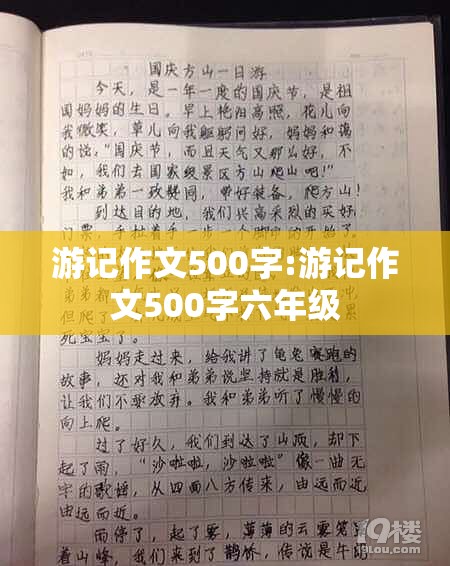 国庆方山一日游
今天，是一年一度的国庆节，是祖
国妈妈的生日。早上艳阳高照，花儿向
我微笑，草儿向我躹躬问好，妈妈和蔼
的说："国庆节，而且天气又那么好，不
如，我们去国家级景区方山爬山吧！"
我和弟弟一致赞同，带好装备，爬方山！
到达目的地，我们兴高采烈的买好
门票，手拉着手一步一个脚印的开始了
游记作文500字:游记作
文500字六年级
但爬了
死宝宝了。
妈妈走过来，给我讲了龟兔赛跑的
故事，还对我和弟弟说坚持就是胜利，
让我们不要放弃。我和弟弟们了慢慢的
向上爬。
过了好久，我们到达了山顶，却下
起了雨，"沙啦啦，沙啦啦"像一曲无
字的歌谣，从四面八方传来，由远而近
由远而近。
雨停了，起了雾，薄薄的云雾笼罩
着山峰，我们来到了鹊桥，传说是牛郎
19楼
19lou.com